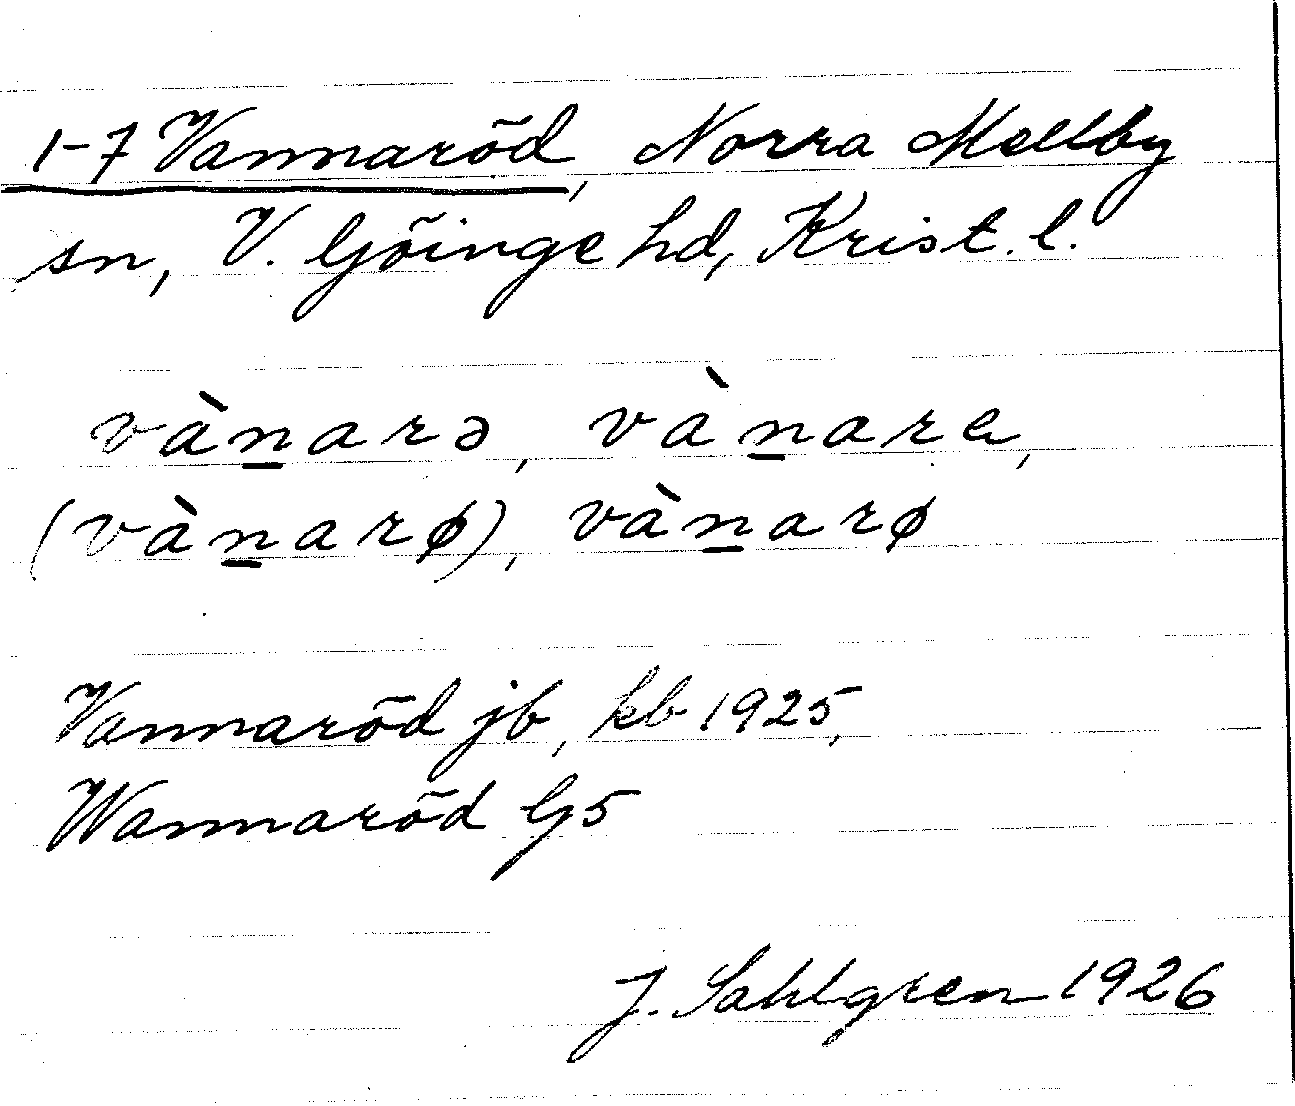 1-7 Vannaröd, Norra Mellby
sn, V. Göinge hd, Krist. l.
vànarə, vànare,
(vànarø), vànarø
Vannaröd jb, kb 1925,
Wannaröd G5
J. Sahlgren 1926